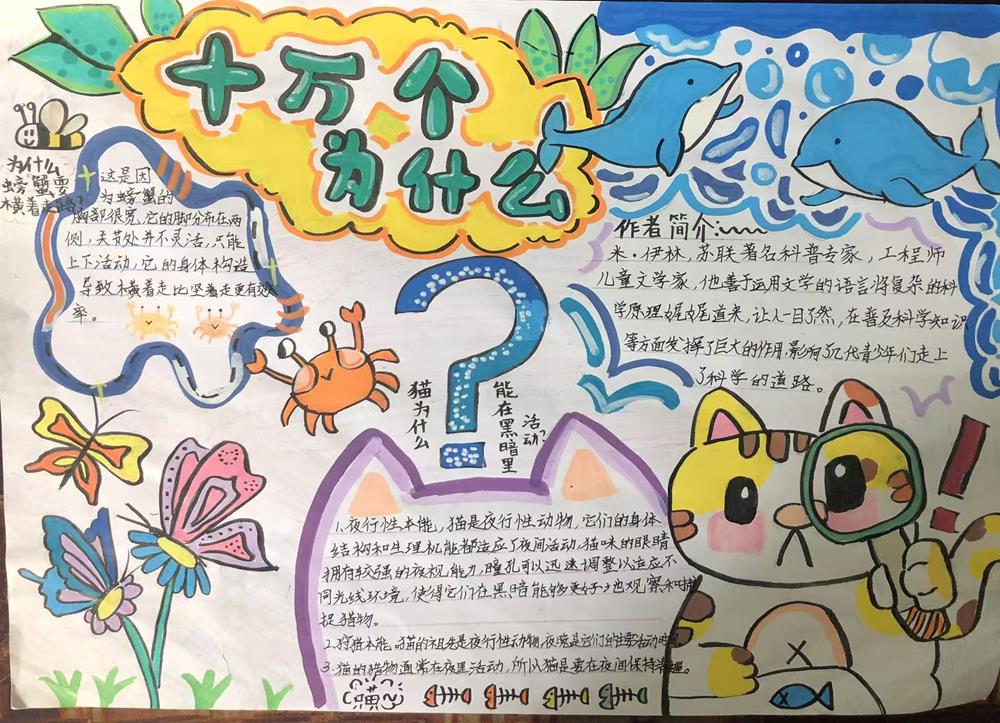 十万个
为什么
为什么
螃蟹要
横着走路?
这是因
为螃蟹的
胸部很宽,它的脚分布在两
侧,关节处并不灵活,只能
上下活动,它的身体构造
导致横着走比竖着走更有效
率。
作者简介:
米·伊林,苏联著名科普专家,工程师
儿童文学家,他善于运用文学的语言将复杂的科
学原理娓娓道来,让人一目了然,在普及科学知识
等方面发挥了巨大的作用,影响了几代青少年们走上
了科学的道路。
猫为什么
能在黑暗里
活动?
1.夜行性本能,猫是夜行性动物,它们的身体
结构和生理机能都适应了夜间活动,猫咪的眼睛
拥有较强的夜视能力,瞳孔可以迅速调整以适应不
同光线环境,使得它们在黑暗能够更好地观察和捕
捉猎物。
2.狩猎本能,猫的祖先是夜行性动物,夜晚是它们的主要活动时间
3.猫的猎物通常在夜里活动,所以猫是要在夜间保持清醒。